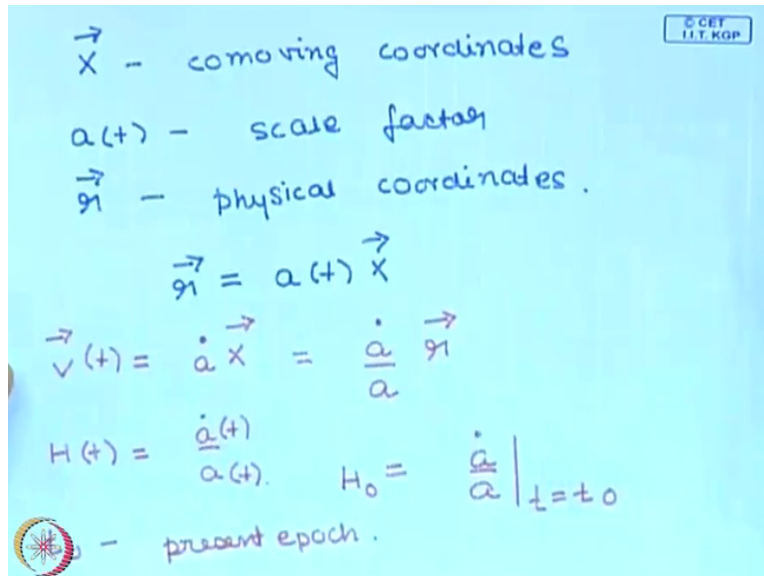 © CET
I.I.T. KGP
x⃗ - comoving coordinates
a(t) - scale factor
r⃗ - physical coordinates.
r⃗ = a(t) x⃗
v⃗(t) = ȧ x⃗ = ȧ/a r⃗
H(t) = ȧ(t)/a(t). H₀ = ȧ/a |t=t₀
- present epoch.